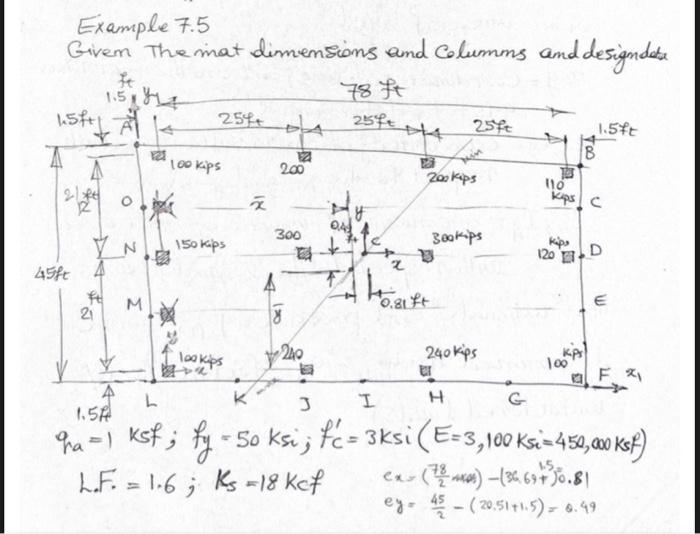 Example 7.5
Given The mat dimensions and Columns and design data
ft
1.5 y1
78 ft
1.5ft
A
25ft 25ft 25ft
1.5ft
B
100 kips
200
200 kips
110 kips
21 ft
O
x̄
y
0.49
C
N
150 kips
300
C
x
300 kips
kips
120
D
45ft
ft
21
M
ȳ
0.81 ft
E
100 kips
x
240
240 kips
kips
100
F
x1
1.5ft
L K J I H G
qha = 1 ksf ; fy = 50 ksi ; f'c = 3ksi (E=3,100 ksi=450,000 ksf)
L.F. = 1.6 ; Ks = 18 kcf
ex = (78/2) - (36.69+1.5)=0.81
ey = 45/2 - (20.51+1.5) = 0.49